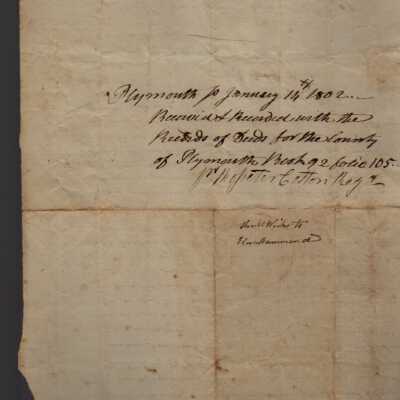 Plymouth ss January 14th 1802
Received & Recorded with the
Records of Deeds for the County
of Plymouth Book 92 folio 105.
pr Rossiter Cotton Regr
to
Hammond